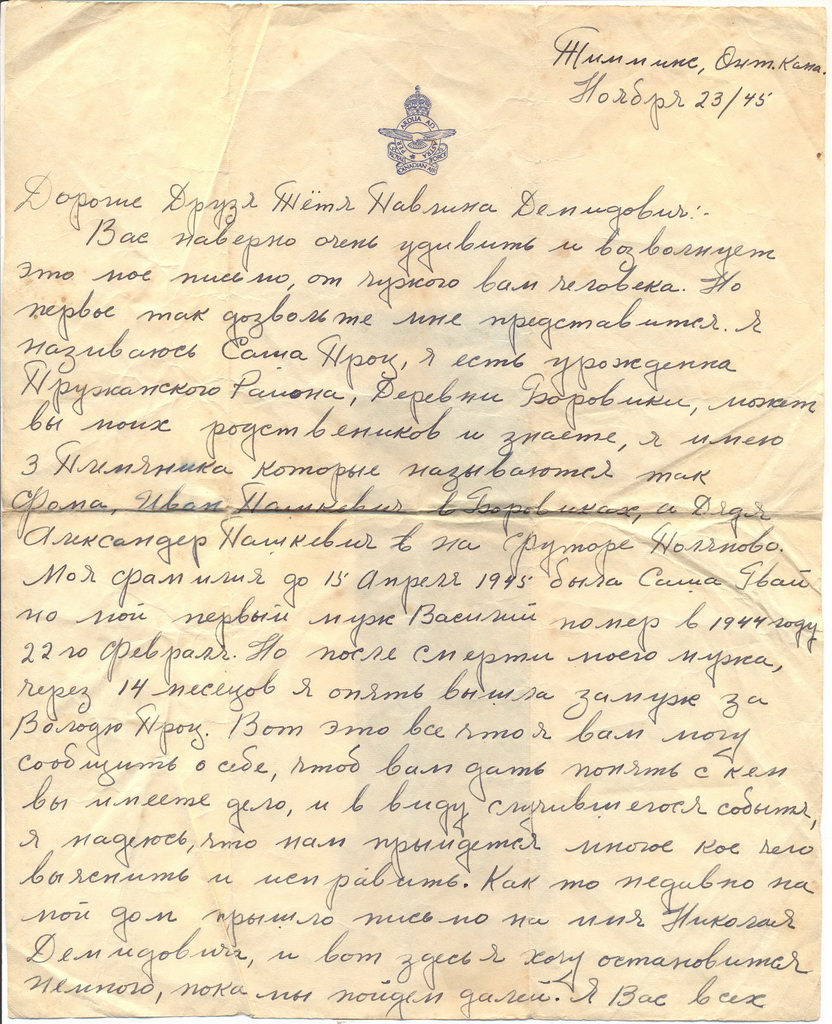 Тимминс, Онт. Кана.
Ноября 23/45
PER ARDUA AD ASTRA
ROYAL CANADIAN AIR FORCE
Дорогие Друзя Тётя Павлина Демидович:-
Вас наверно очень удивить и возволнует
это мое письмо, от чужого вам человека. Но
первое так дозвольте мне представится. Я
называюсь Саша Проц, я есть урожденна
Пружанского Района, Деревни Боровики, может
вы моих родствеников и знаете, я имею
3 Племяника которые называются так
Фома, Иван Пашкевич в Боровиках, а Дядя
Александер Пашкевич в на Футоре Поляново.
Моя фамилия до 15 Апреля 1945 была Саша Гвай
но мой первый муж Василий помер в 1944 году
22 го Февраля. Но после смерти моего мужа,
через 14 месецов я опять вышла замуж за
Володю Проц. Вот это все что я вам могу
сообщить о себе, чтоб вам дать понять с кем
вы имеете дело, и в виду случившегося событя,
я надеюсь, что нам прыйдется многое кое чего
выяснить и исправить. Как то недавно на
мой дом прышло письмо на имя Николая
Демидовича, и вот здесь я хочу остановится
немного, пока мы пойдем далей. Я Вас всех